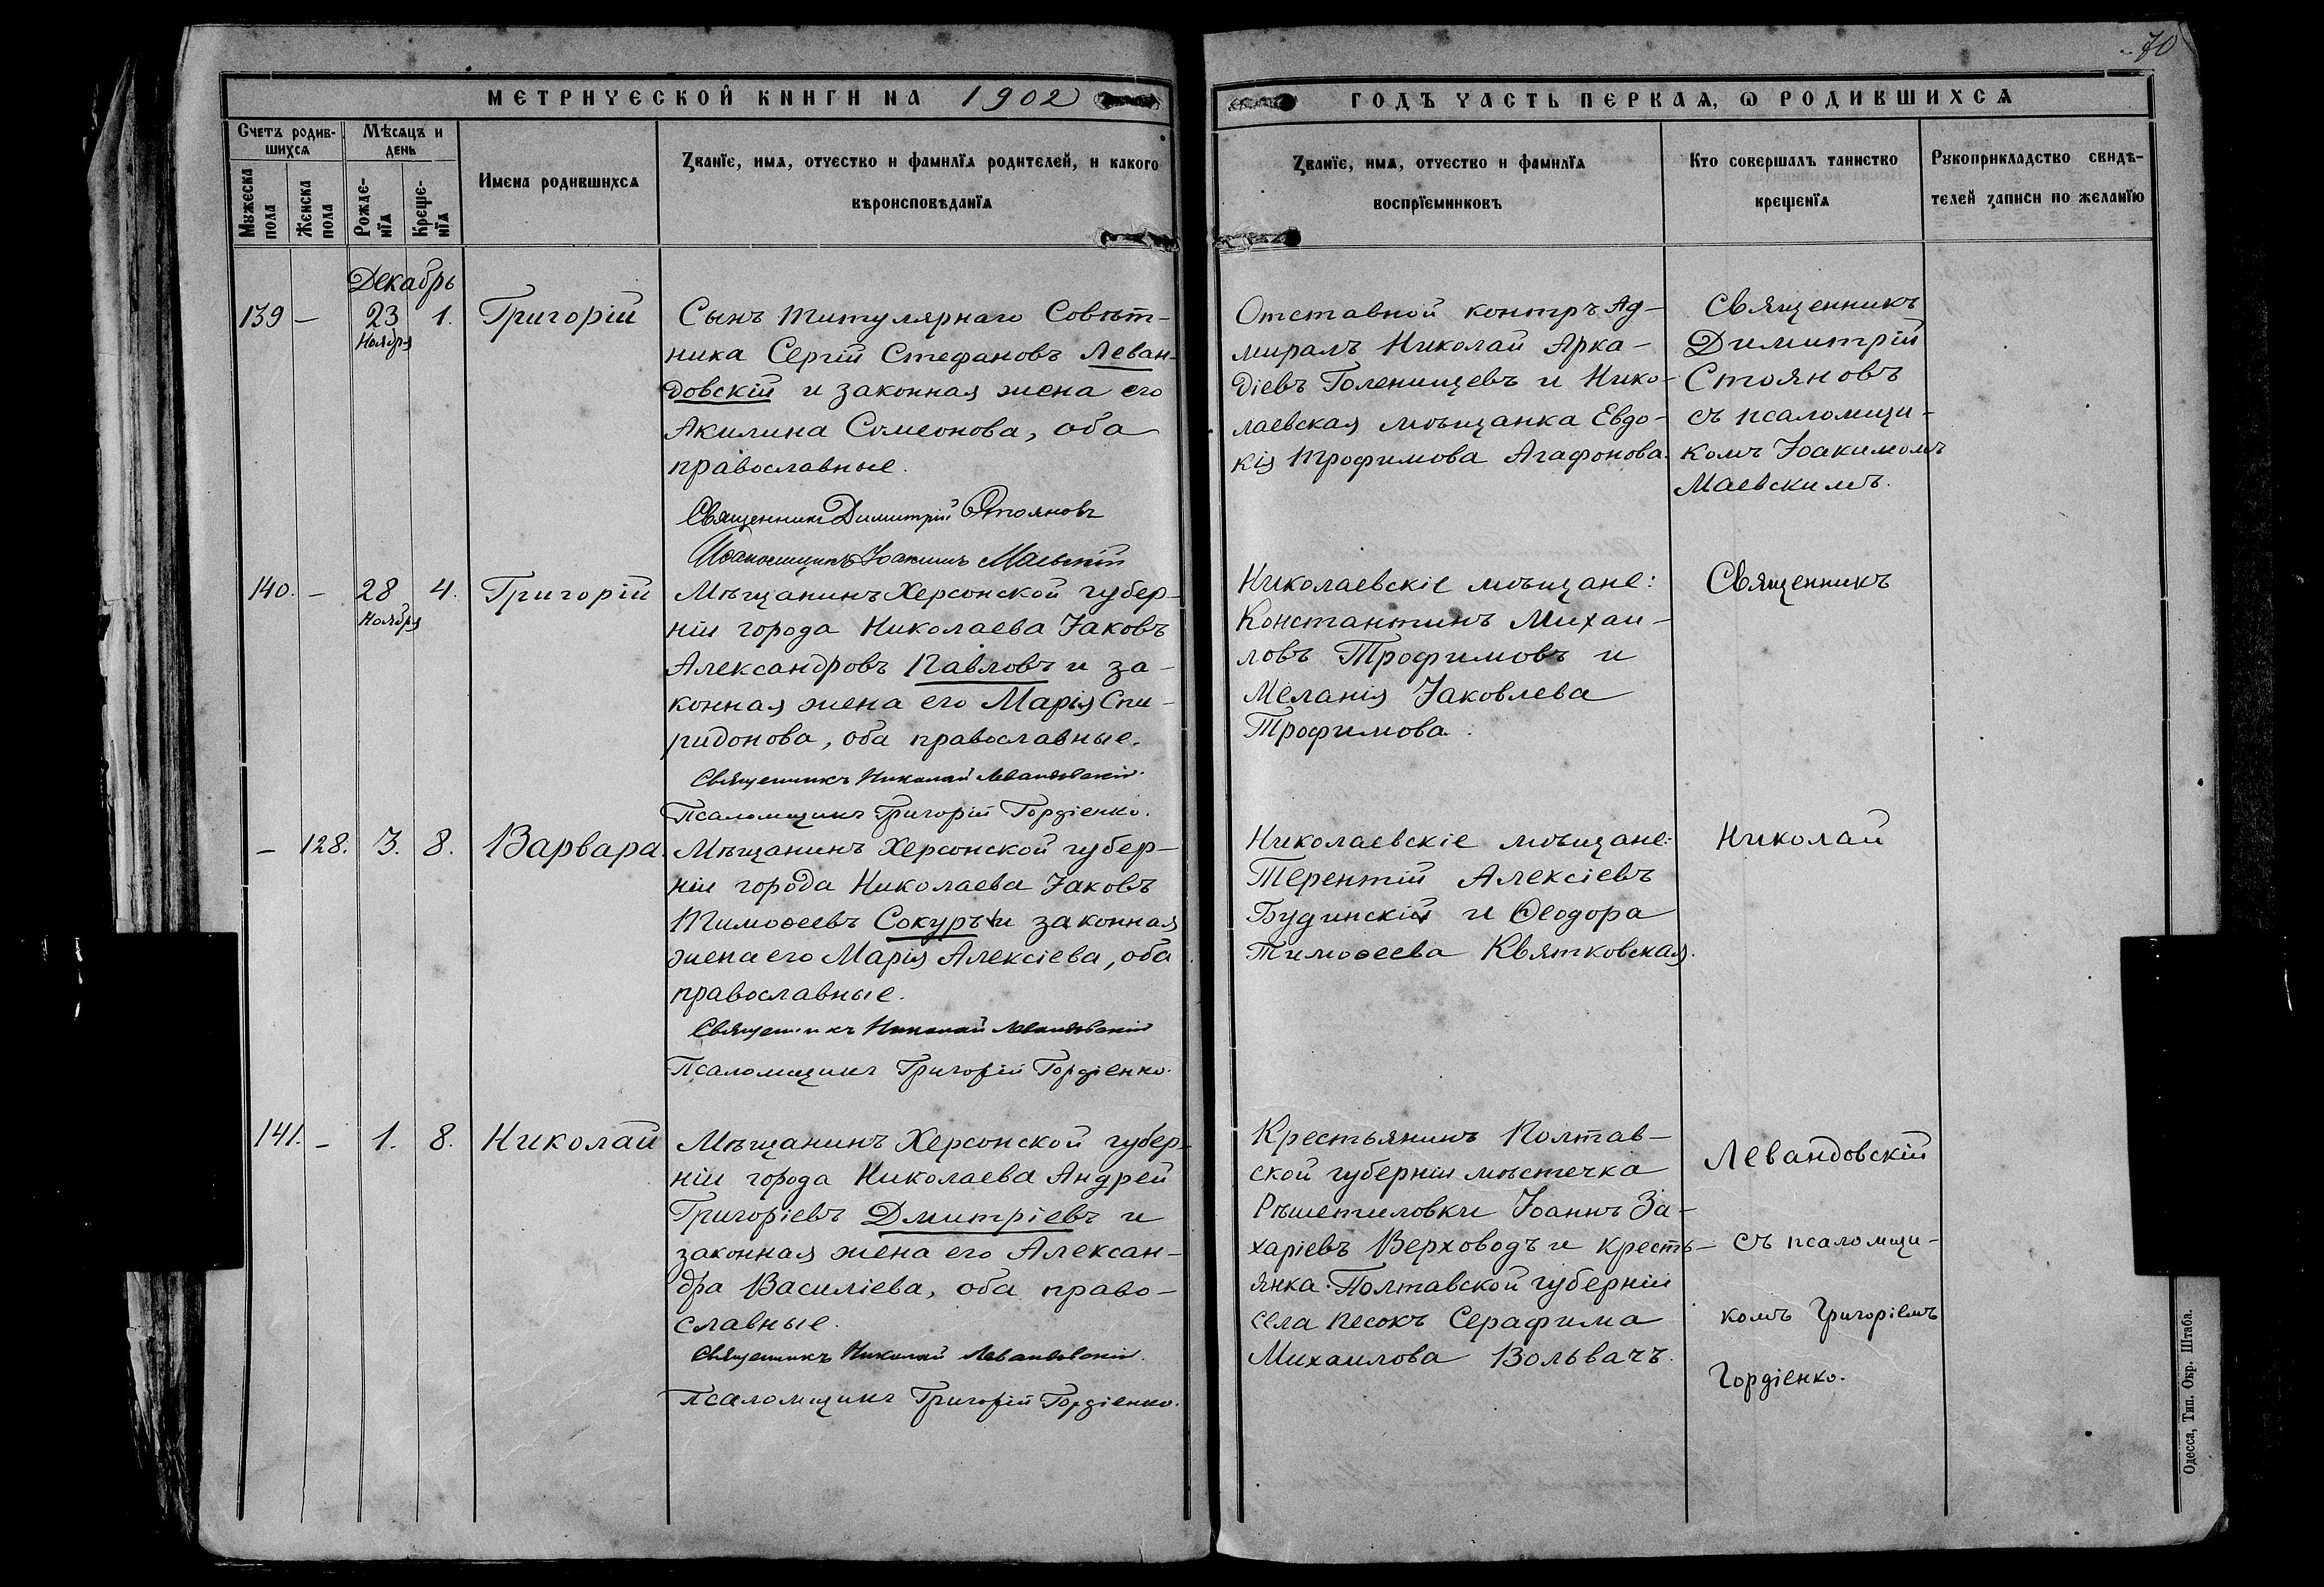 70
МЕТРИЧЕСКОЙ КНИГИ НА 1902
ГОДЪ ЧАСТЬ ПЕРВАЯ, Ѡ РОДИВШИХСЯ
Счетъ родив-
шихся
Мѣсяцъ и
день
Мужеска
пола
Женска
пола
Рожде-
нїя
Креще-
нїя
Имена родившихся
Званїе, имя, отчество и фамилїя родителей, и какого
вѣроисповѣданїя
Званїе, имя, отчество и фамилїя
воспрїемниковъ
Кто совершалъ таинство
крещенїя
Рукоприкладство свидѣ-
телей записи по желанїю
Декабрь
139 – 23 Ноября 1. Григорій
Сынъ Титулярнаго Совѣт-
ника Сергій Стефановъ Леван-
довскій и законная жена его
Акилина Симеонова, оба
православные.
Священникъ Димитрій Стояновъ
Псаломщикъ Іоакимъ Маевскій
Отставной контръ Ад-
миралъ Николай Арка-
діевъ Голенищевъ и Нико-
лаевская мѣщанка Евдо-
кія Трофимова Агафонова.
Священникъ
Димитрій
Стояновъ
съ псаломщи-
комъ Іоакимомъ
Маевскимъ.
140. – 28 Ноября 4. Григорій
Мѣщанинъ Херсонской губер-
ніи города Николаева Іаковъ
Александровъ Павловъ и за-
конная жена его Марія Спи-
ридонова, оба православные.
Священникъ Николай Левандовскій.
Псаломщикъ Григорій Гордіенко.
Николаевскіе мѣщане:
Константинъ Михаи-
ловъ Трофимовъ и
Меланія Іаковлева
Трофимова.
Священникъ
– 128. 3. 8. Варвара.
Мѣщанинъ Херсонской губер-
ніи города Николаева Іаковъ
Тимоѳеевъ Сокуръ и законная
жена его Марія Алексіева, оба
православные.
Священникъ Николай Левандовскій
Псаломщикъ Григорій Гордіенко.
Николаевскіе мѣщане:
Терентій Алексіевъ
Будинскій и Ѳеодора
Тимоѳеева Квятковская.
Николай
141. – 1. 8. Николай
Мѣщанинъ Херсонской губер-
ніи города Николаева Андрей
Григоріевъ Дмитріевъ и
законная жена его Алексан-
дра Василіева, оба право-
славные.
Священникъ Николай Левандовскій.
Псаломщикъ Григорій Гордіенко.
Крестьянинъ Полтав-
ской губерніи мѣстечка
Рѣшетиловки Іоаннъ За-
харіевъ Верховодъ и кресть-
янка Полтавской губерніи
села Песокъ Серафима
Михаилова Вольвачъ.
Левандовскій
съ псаломщи-
комъ Григоріемъ
Гордіенко.
Одесса, Тип. Окр. Штаба.